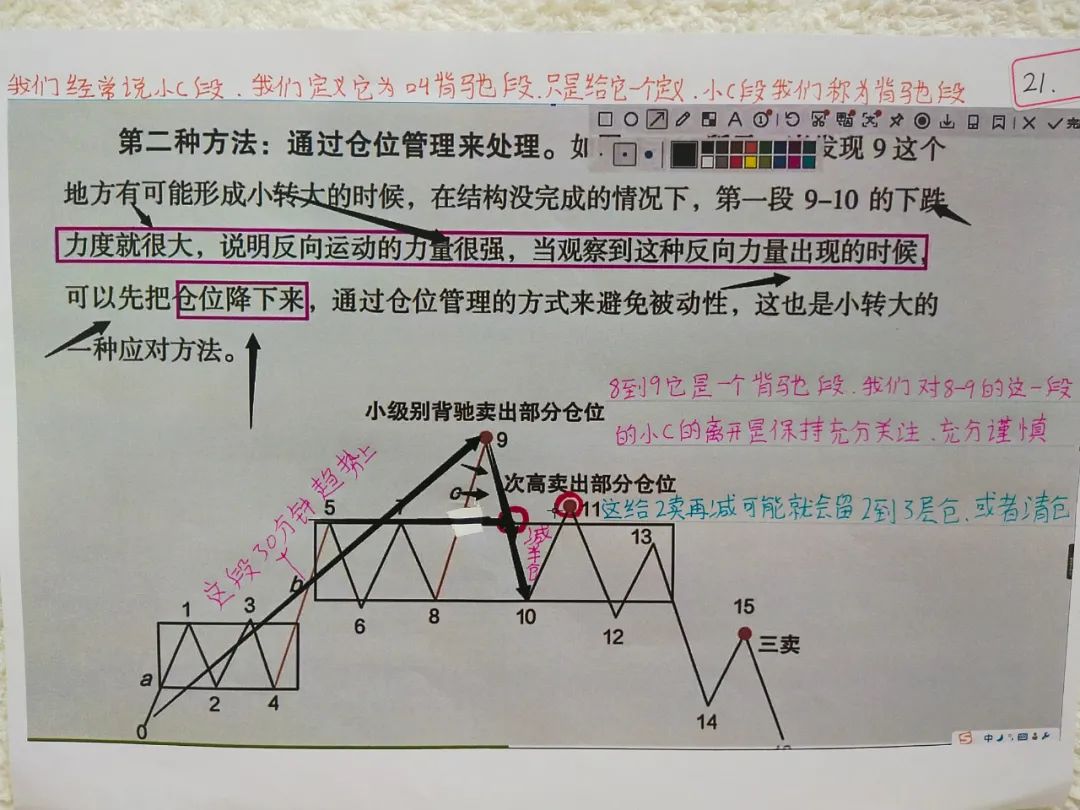 我们经常说小C段、我们定义它为叫背驰段、只是给它一个定义、小C段我们称为背驰段
21.
第二种方法：通过仓位管理来处理。如
发现 9 这个
地方有可能形成小转大的时候，在结构没完成的情况下，第一段 9-10 的下跌
力度就很大，说明反向运动的力量很强，当观察到这种反向力量出现的时候，
可以先把仓位降下来，通过仓位管理的方式来避免被动性，这也是小转大的
一种应对方法。
8到9它是一个背驰段、我们对8-9的这一段
的小C的离开是保持充分关注、充分谨慎
小级别背驰卖出部分仓位
9
次高卖出部分仓位
c
这段30分钟趋势上
5
7
11
这给2卖再减可能就会留2到3层仓、或者清仓
减半仓
13
b
6
8
10
12
1
3
15
三卖
a
2
4
14
0
中